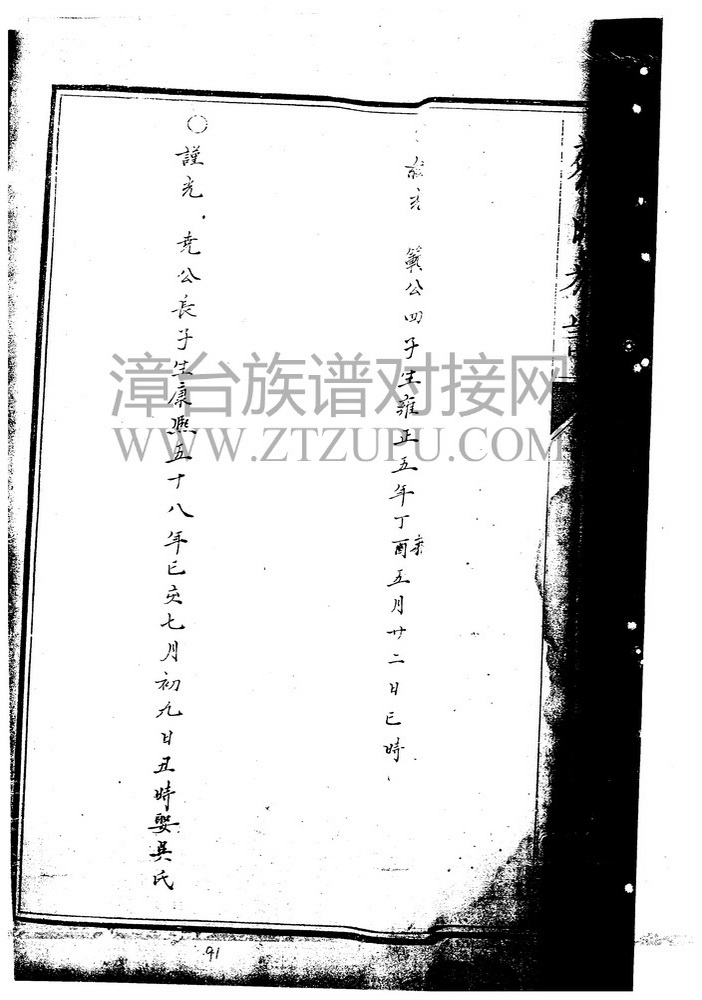 公四子生雍正五年丁酉五月廿二日巳時
○謹光 堯公長子生康熙五十八年已亥七月初九日丑時娶吳氏
漳台族谱对接网
WWW.ZTZUPU.COM
91